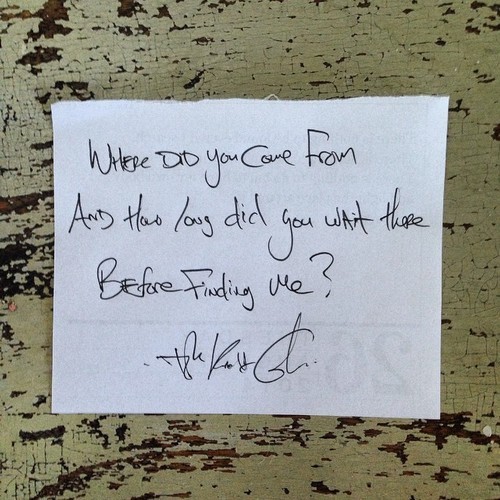 WHERE DID you Come From
AND How long did you WAIT there
BEFore Finding Me?